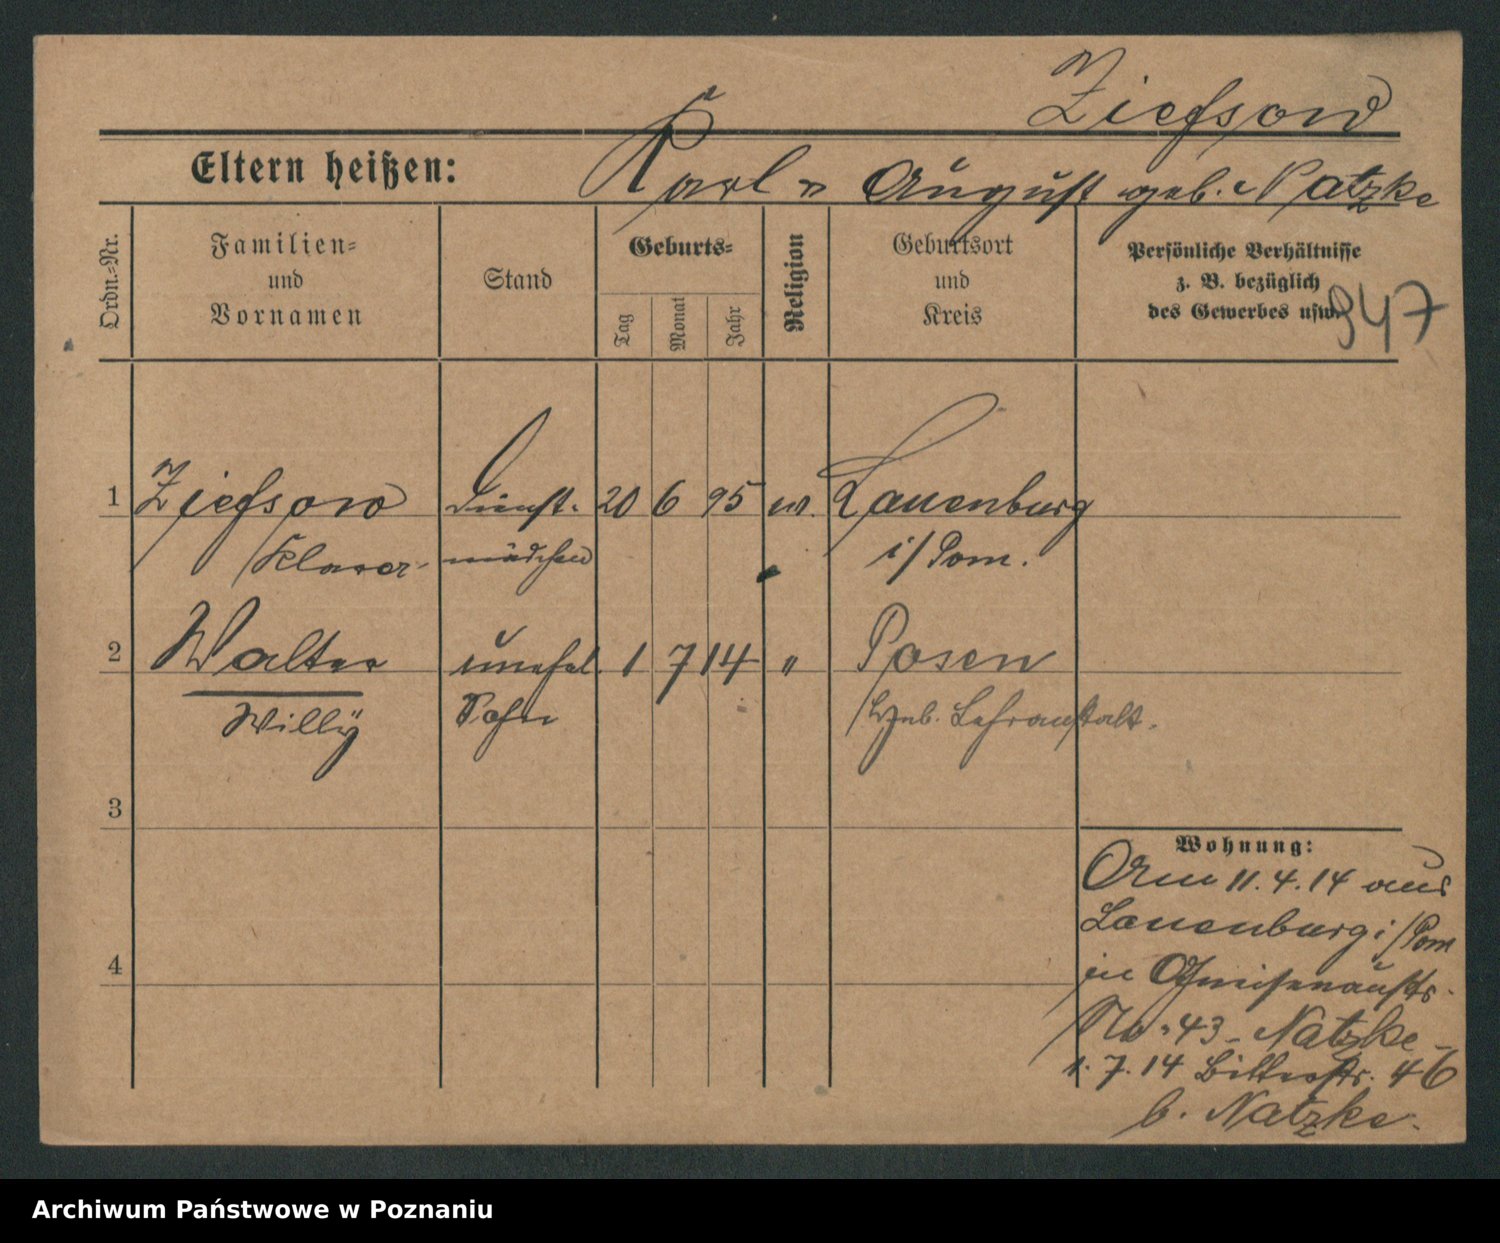 Ziefsow
Eltern heißen: Karl u August geb. Natzke
Ordn.-Nr.
Familien-
und
Vornamen
Stand
Geburts-
Tag
Monat
Jahr
Religion
Geburtsort
und
Kreis
Persönliche Verhältnisse
z. B. bezüglich
des Gewerbes usw.
947
1 Ziefsow Dienst- 20 6 95 ev. Lauenburg
mädchen i/Pom.
2 Walter unehel. 1 7 14 " Posen
Willÿ Sohn Heb. Lehranstalt.
3
4
Wohnung:
Am 11.4.14 aus
Lauenburg i/Pom
in Gneisenaustr.
No. 43 - Natzke -
1.7.14 Bitterstr. 46
b. Natzke.
Archiwum Państwowe w Poznaniu